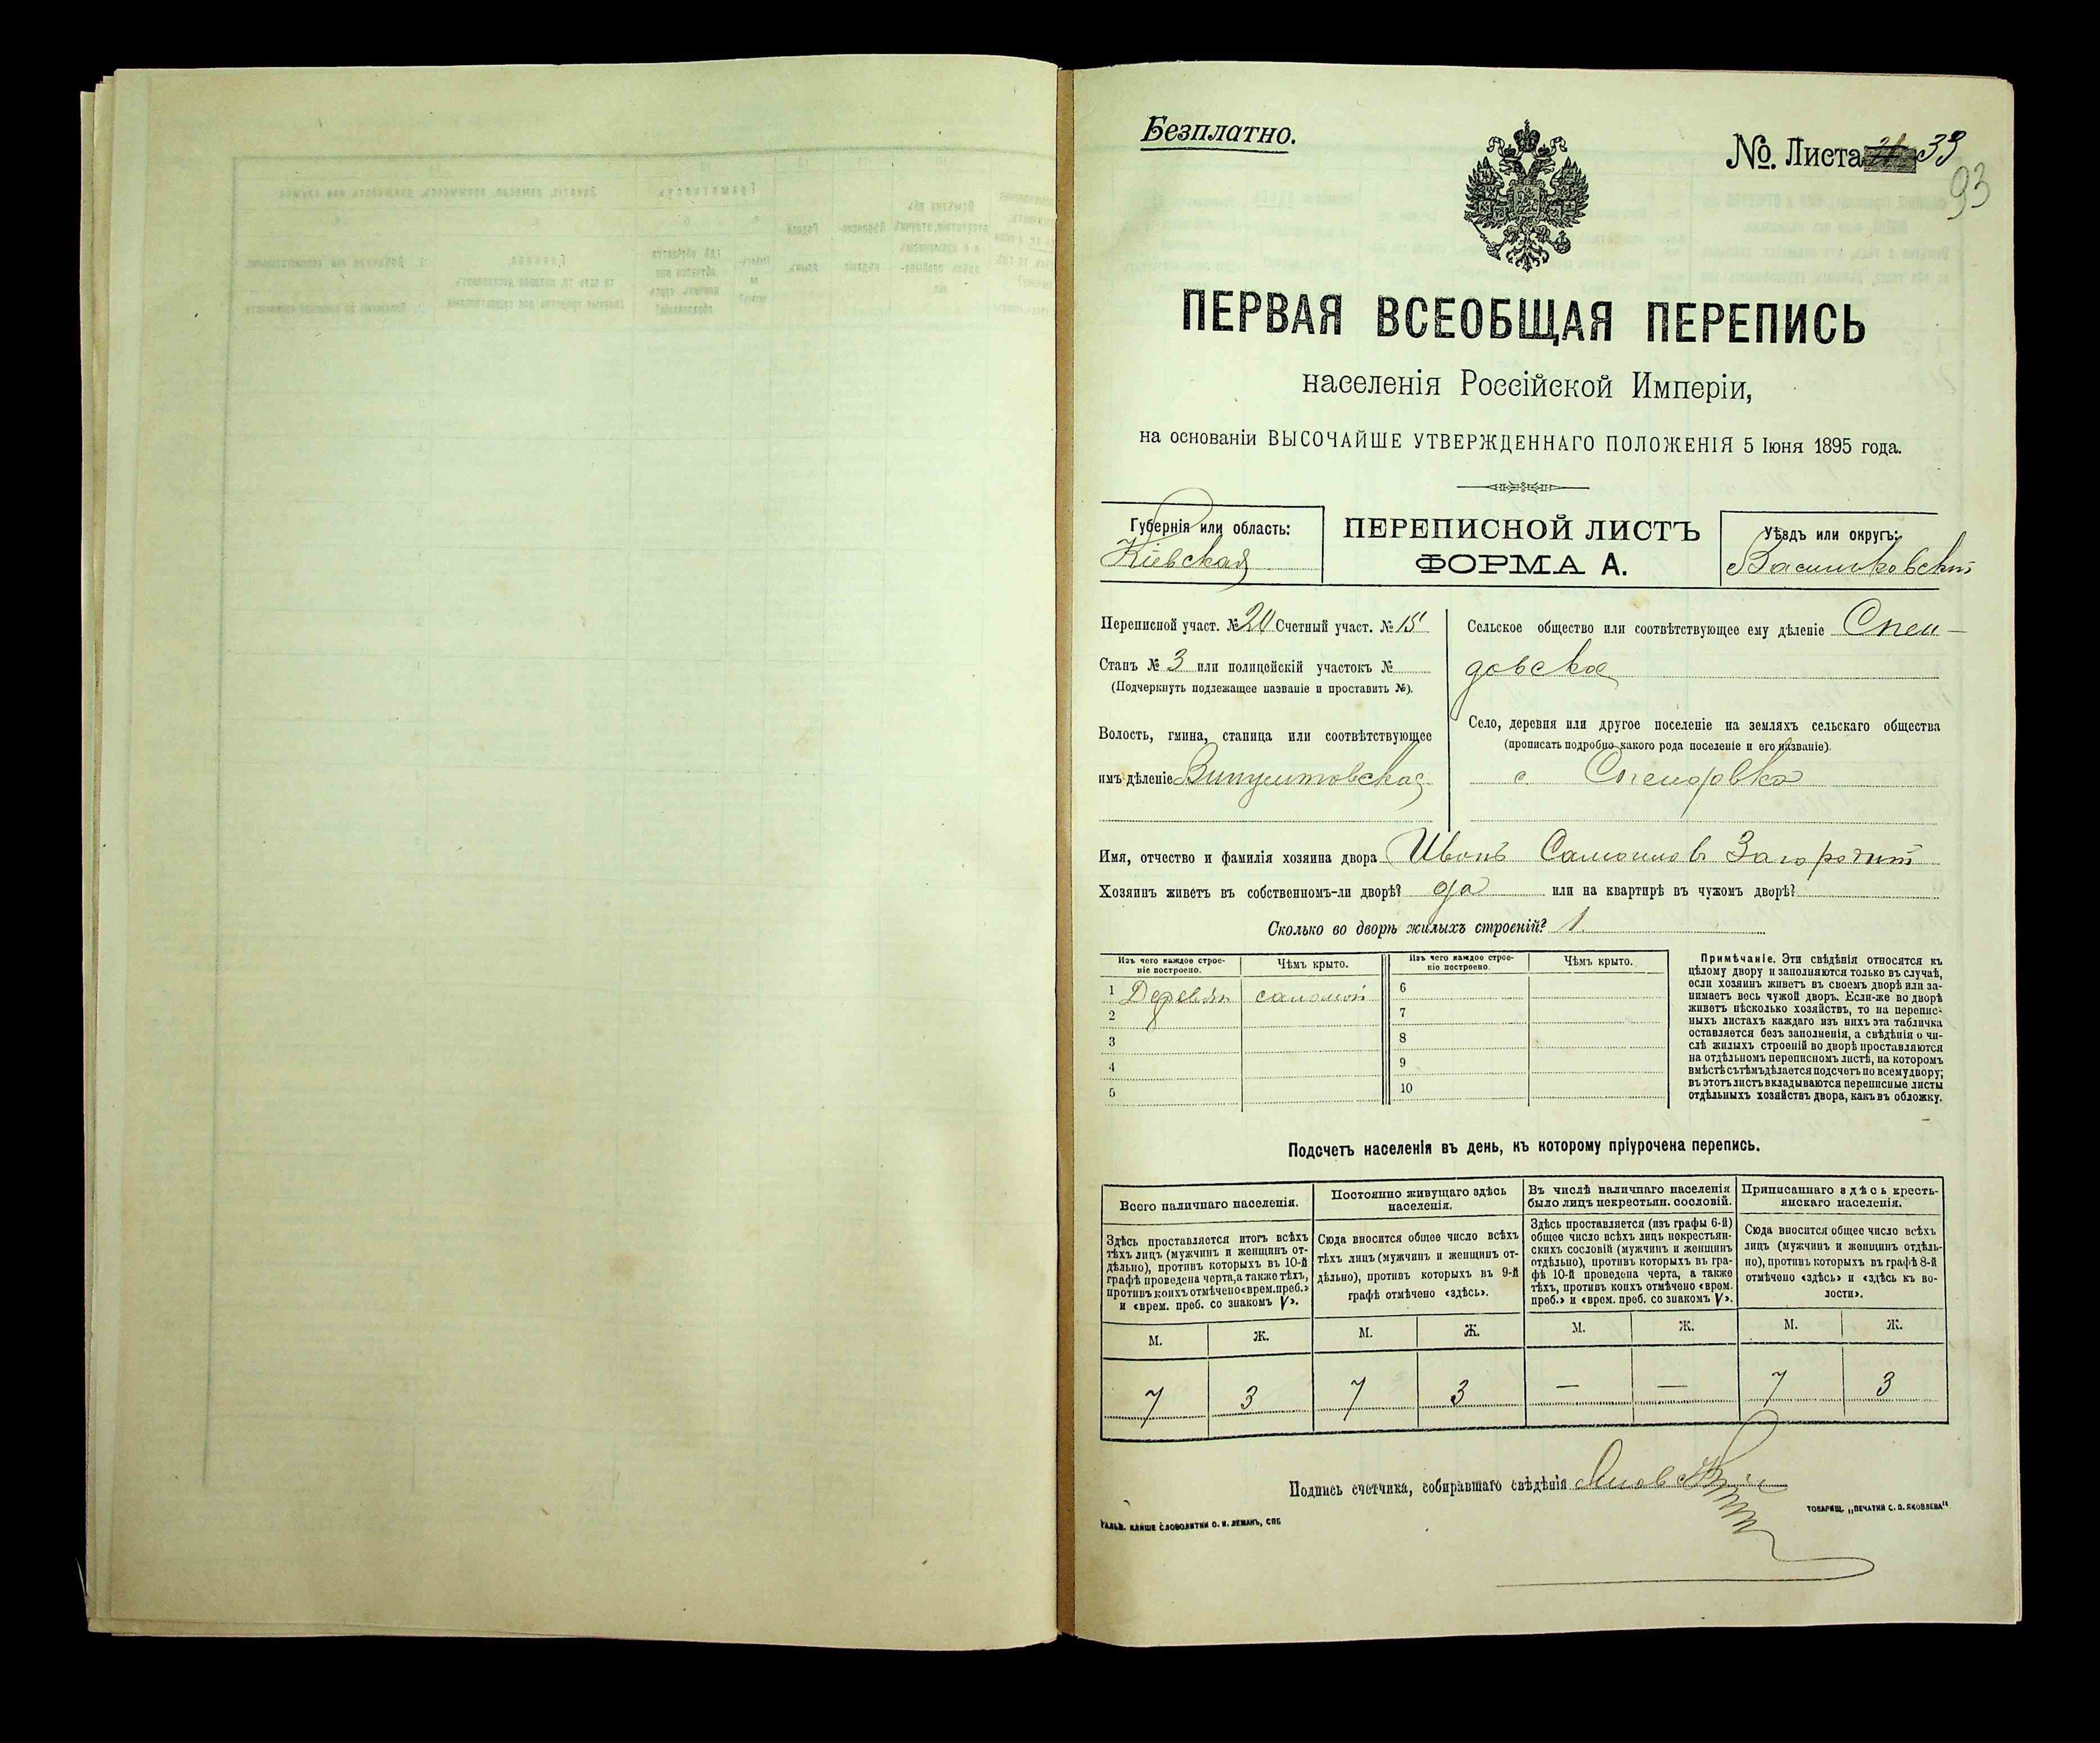 Безплатно.
№. Листа 33
93
ПЕРВАЯ ВСЕОБЩАЯ ПЕРЕПИСЬ
населенія Россійской Имперіи,
на основаніи ВЫСОЧАЙШЕ УТВЕРЖДЕННАГО ПОЛОЖЕНІЯ 5 Іюня 1895 года.
Губернія или область:
Кіевская
ПЕРЕПИСНОЙ ЛИСТЪ
ФОРМА А.
Уѣздъ или округъ:
Васильковскій
Переписной участ. № 20 Счетный участ. № 15
Станъ № 3 или полицейскій участокъ №
(Подчеркнуть подлежащее названіе и проставить №).
Волость, гмина, станица или соотвѣтствующее
имъ дѣленіе Винцентовская
Сельское общество или соотвѣтствующее ему дѣленіе Спен-
довское
Село, деревня или другое поселеніе на земляхъ сельскаго общества
(прописать подробно какого рода поселеніе и его названіе).
с. Спендовка
Имя, отчество и фамилія хозяина двора Иванъ Самоилов Загородній
Хозяинъ живетъ въ собственномъ-ли дворѣ? да или на квартирѣ въ чужомъ дворѣ?
Сколько во дворѣ жилыхъ строеній? 1.
Изъ чего каждое строе-
ніе построено.
Чѣмъ крыто.
Изъ чего каждое строе-
ніе построено.
Чѣмъ крыто.
1 Деревян соломой
2
3
4
5
6
7
8
9
10
Примѣчаніе. Эти свѣдѣнія относятся къ
цѣлому двору и заполняются только въ случаѣ,
если хозяинъ живетъ въ своемъ дворѣ или за-
нимаетъ весь чужой дворъ. Если-же во дворѣ
живетъ нѣсколько хозяйствъ, то на перепис-
ныхъ листахъ каждаго изъ нихъ эта табличка
оставляется безъ заполненія, а свѣдѣнія о чи-
слѣ жилыхъ строеній во дворѣ проставляются
на отдѣльномъ переписномъ листѣ, на которомъ
вмѣстѣ съ тѣмъ дѣлается подсчетъ по всему двору;
въ этотъ листъ вкладываются переписные листы
отдѣльныхъ хозяйствъ двора, какъ въ обложку.
Подсчетъ населенія въ день, къ которому пріурочена перепись.
Всего наличнаго населенія.
Здѣсь проставляется итогъ всѣхъ
тѣхъ лицъ (мужчинъ и женщинъ от-
дѣльно), противъ которыхъ въ 10-й
графѣ проведена черта, а также тѣхъ,
противъ коихъ отмѣчено «врем. преб.»
и «врем. преб. со знакомъ V».
Постоянно живущаго здѣсь
населенія.
Сюда вносится общее число всѣхъ
тѣхъ лицъ (мужчинъ и женщинъ от-
дѣльно), противъ которыхъ въ 9-й
графѣ отмѣчено «здѣсь».
Въ числѣ наличнаго населенія
было лицъ некрестьян. сословій.
Здѣсь проставляется (изъ графы 6-й)
общее число всѣхъ лицъ некрестьян-
скихъ сословій (мужчинъ и женщинъ
отдѣльно), противъ которыхъ въ гра-
фѣ 10-й проведена черта, а также
тѣхъ, противъ коихъ отмѣчено «врем.
преб.» и «врем. преб. со знакомъ V».
Приписаннаго здѣсь кресть-
янскаго населенія.
Сюда вносится общее число всѣхъ
лицъ (мужчинъ и женщинъ отдѣль-
но), противъ которыхъ въ графѣ 8-й
отмѣчено «здѣсь» и «здѣсь къ во-
лости».
М. Ж. М. Ж. М. Ж. М. Ж.
7 3 7 3 — — 7 3
Подпись счетчика, собиравшаго свѣдѣнія
ГАЛЬВ. КЛИШЕ СЛОВОЛИТНИ О. И. ЛЕМАНЪ, СПБ
ТОВАРИЩ. „ПЕЧАТНЯ С. П. ЯКОВЛЕВА"